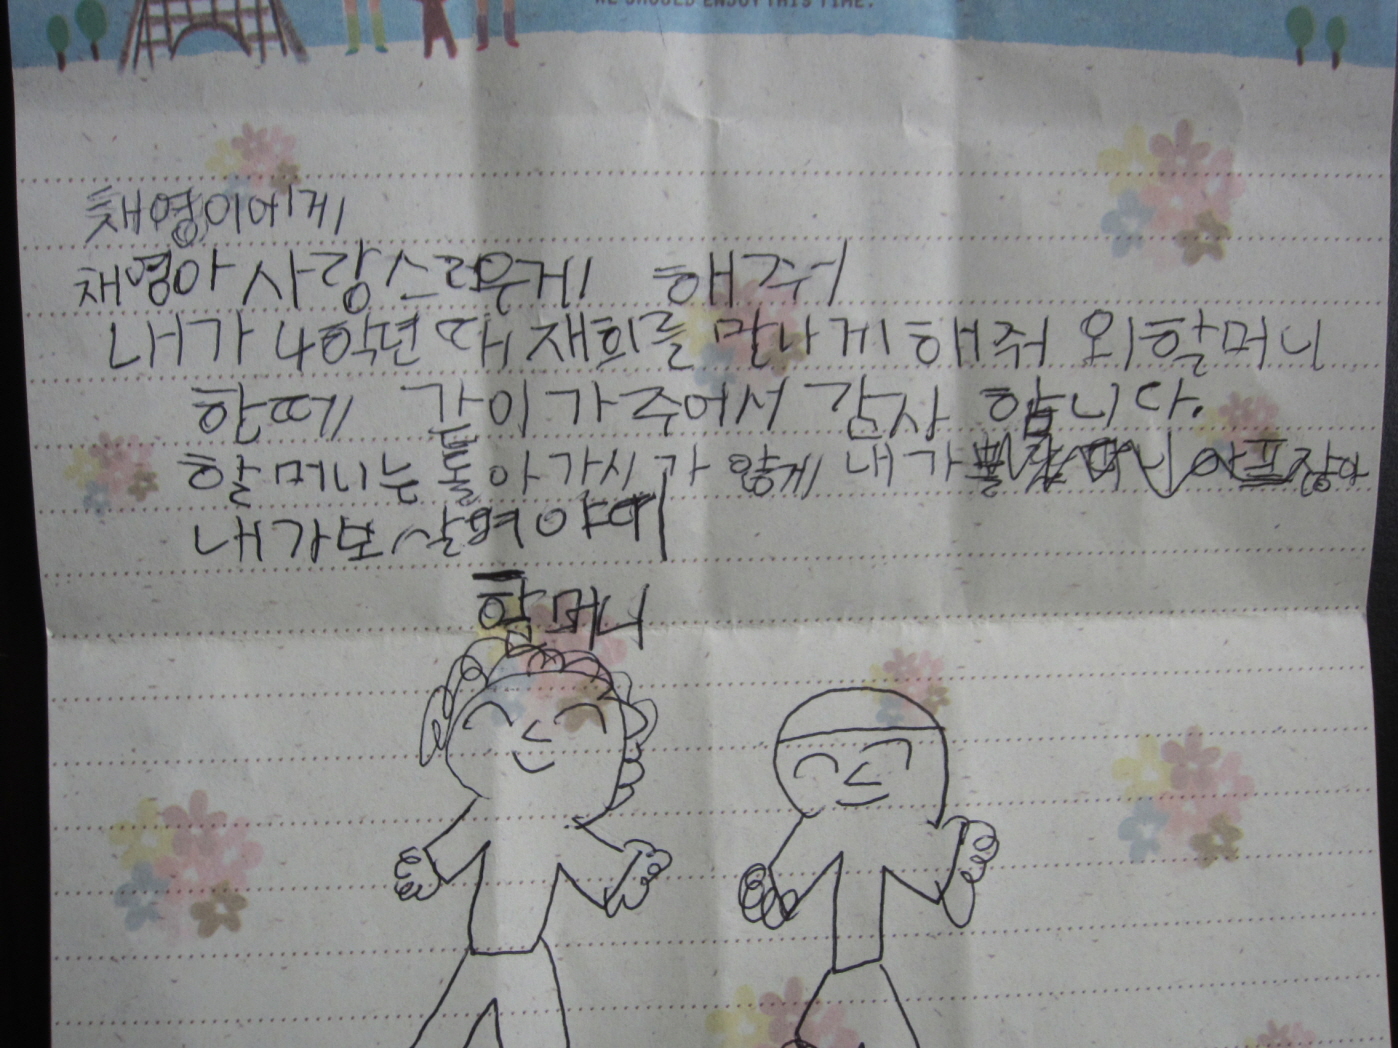 WE SHOULD ENJOY THIS TIME.
채영이에게
채영아 사랑스러운게 해줘
내가 4학년 때 재희를 만나게 해줘 외할머니
한때 같이 가주어서 감사 합니다.
할머니는 돌아가시가 않게 내가 아프잖아
내가보살펴야돼
할머니